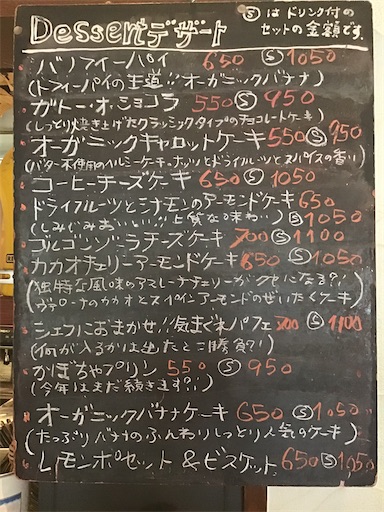 Dessertデザート
Ⓢはドリンク付の
セットの金額です。
バノフィーパイ 650 Ⓢ1050
(トフィーパイの王道!!オーガニックバナナ)
ガトー・オ・ショコラ 550 Ⓢ 950
(しっとり焼き上げたクラッシックタイプのチョコレートケーキ)
オーガニックキャロットケーキ 550 Ⓢ 950
(バター不使用のヘルシーケーキ・ナッツとドライフルーツとスパイスの香り)
コーヒーチーズケーキ 650 Ⓢ 1050
ドライフルーツとシナモンのアーモンドケーキ 650
(しみじみおいしい!!上質な味わい…) Ⓢ1050
ゴルゴンゾーラチーズケーキ 700 Ⓢ 1100
カカオチェリーアーモンドケーキ 650 Ⓢ 1050
(独特な風味のアマレーナチェリーがクセになる?!
のカカオとスペインアーモンドのぜいたくケーキ)
シェフにおまかせ!!気まぐれパフェ 700 Ⓢ 1100
(何が入るかは出たとこ勝負?!)
かぼちゃプリン 550 Ⓢ 950
(今年はまだ続きます?!)
オーガニックバナナケーキ 650 Ⓢ1050
(たっぷりバナナのふんわりしっとり人気のケーキ)
レモンポセット & ビスケット 650 Ⓢ1050